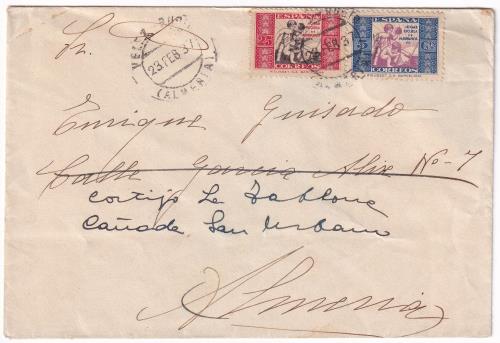 Sr. D.
VELEZ RUBIO
23.FEB.37
(ALMERIA)
ESPAÑA
25
CTS
CORREOS
ESPAÑA
25
CORREOS
Enrique Guisado
Calle Garcia Alix Nº-7
cortijo La Tablona
Cañada San Urbano
Almeria